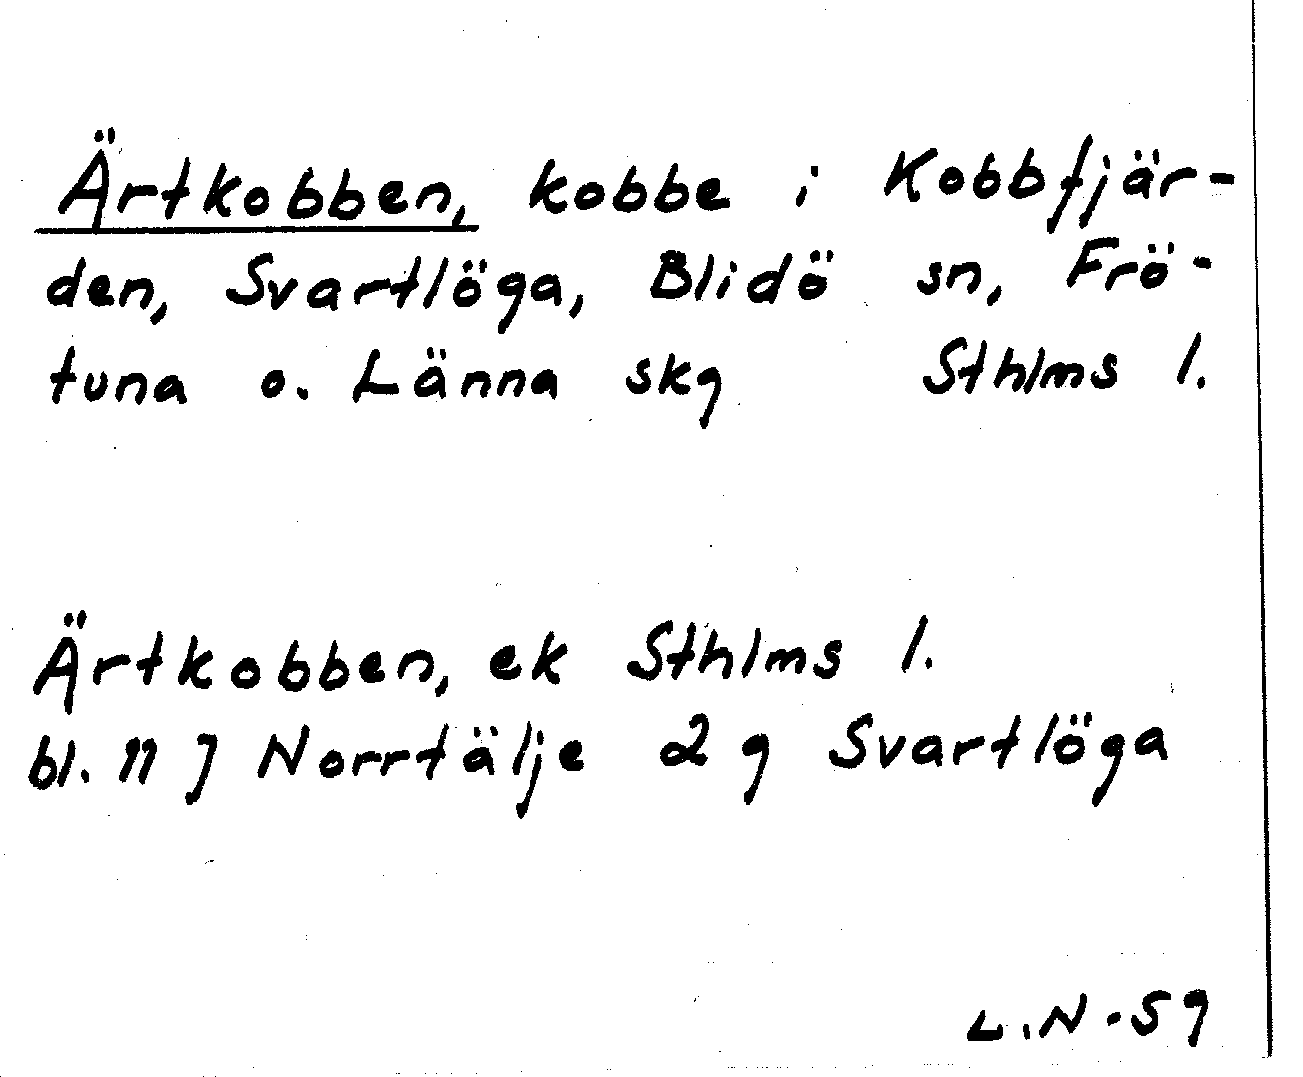 Ärtkobben, kobbe i Kobbfjär-
den, Svartlöga, Blidö sn, Frö-
tuna o. Länna skg Sthlms l.
Ärtkobben, ek Sthlms l.
bl. 11 J Norrtälje 2 g Svartlöga
L.N-59